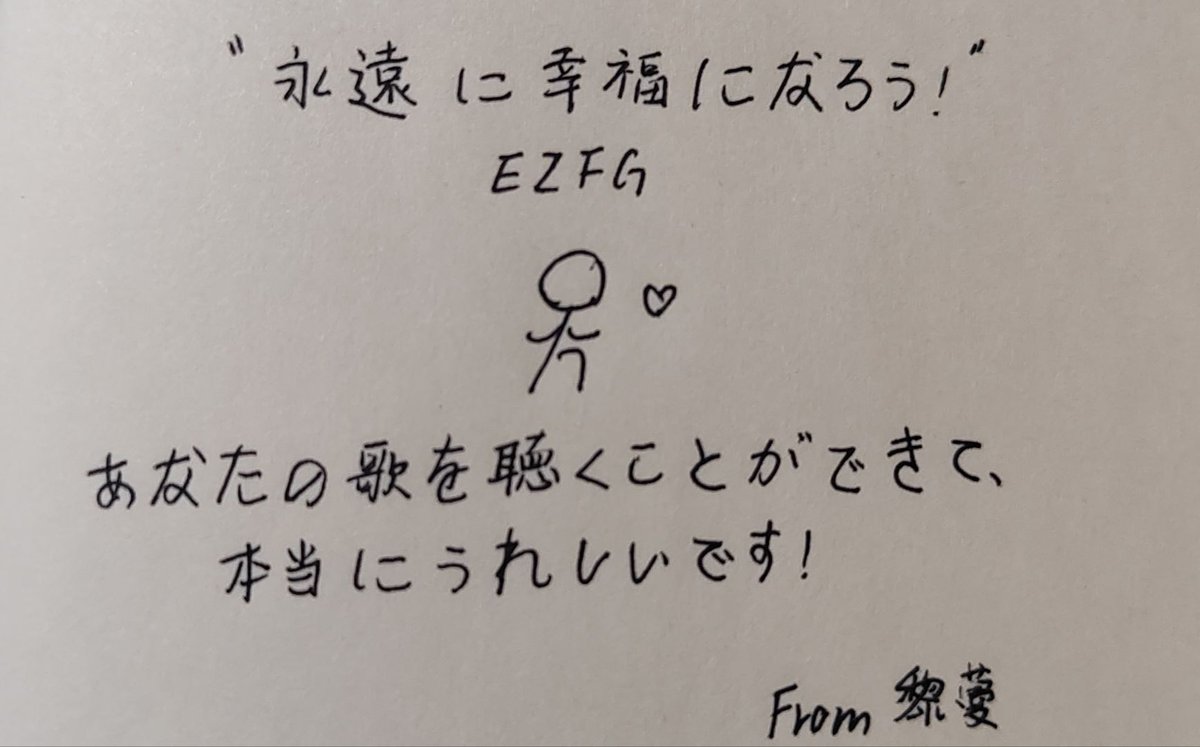 "永遠に幸福になろう!"
EZFG
あなたの歌を聴くことができて、
本当にうれしいです!
From 黎蔓